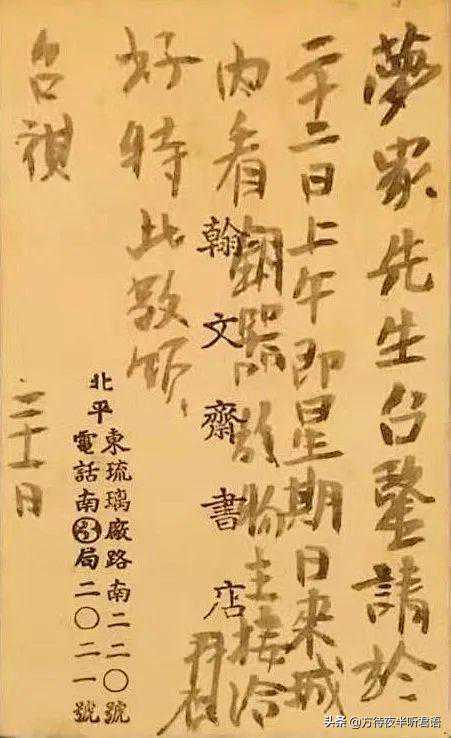 夢家先生台鑒請於
二十二日上午即星期日來城
内看銅器物主接洽
好特此敬頌
台祺
二十一日
翰文齋書店
北平東琉璃廠路南二二〇號
電話南③局二〇二一號
头条 @方待夜半听君语